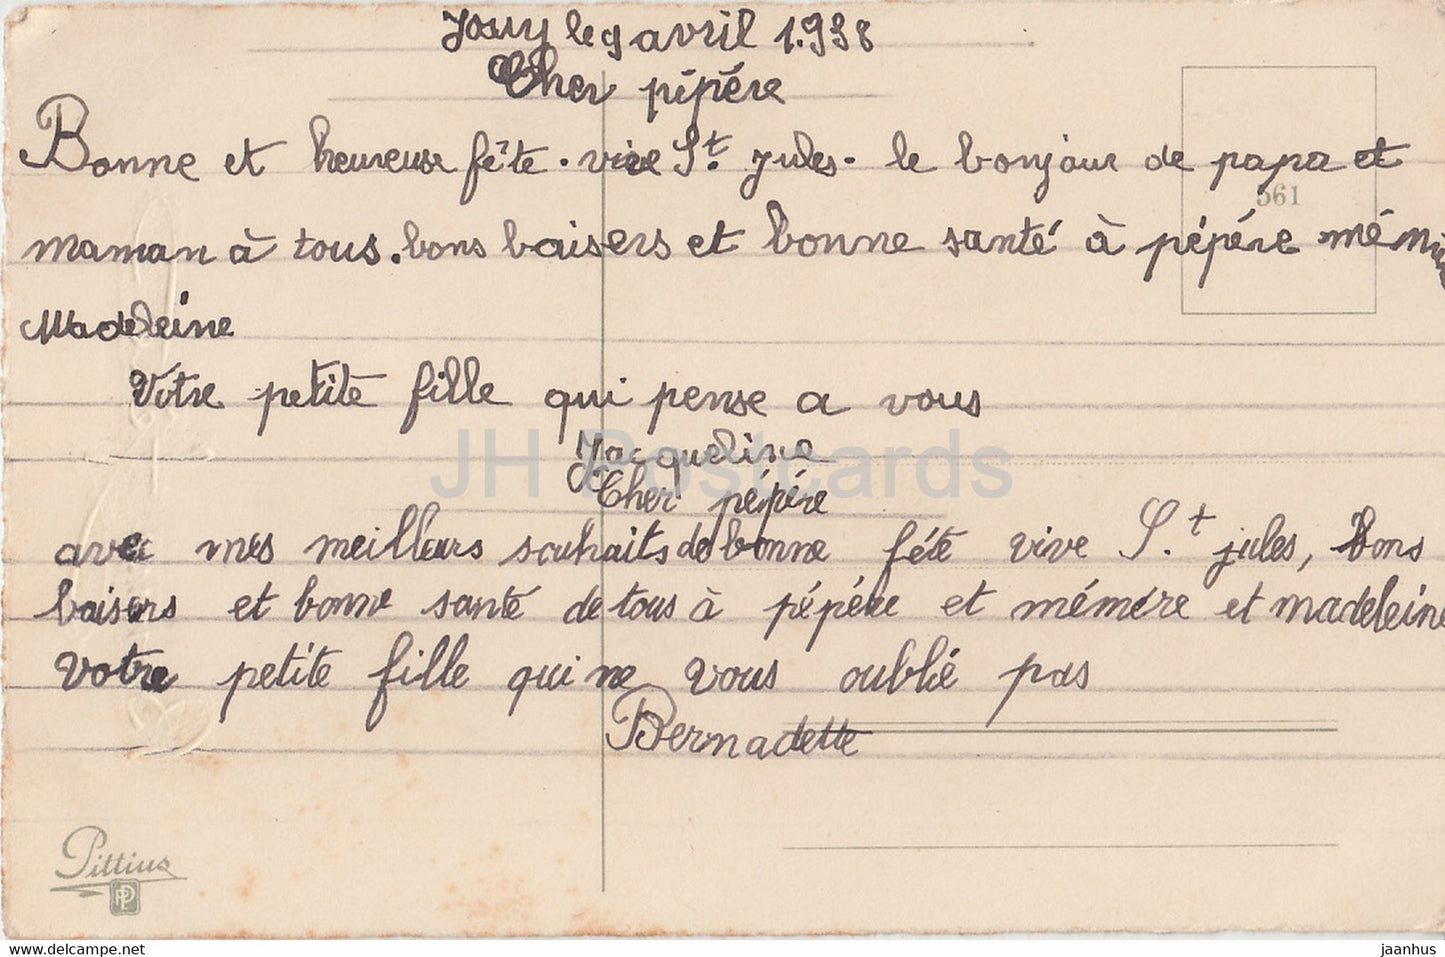 Jouy le 9 avril 1.938
Cher pépére
Bonne et heureuse fête. vive S.t Jules. le bonjour de papa et
maman à tous. bons baisers et bonne santé à pépére
Madeleine
Votre petite fille qui pense a vous
Jacqueline
Cher pépére
avec mes meilleurs souhaits de bonne fété vive S.t jules, bons
baisers et bonne santé de tous à pépére et mémére et madeleine
Votre petite fille qui ne vous oublié pas
Bernadette
561
Pittius
PP
JH Postcards
www.delcampe.net
jaanhus